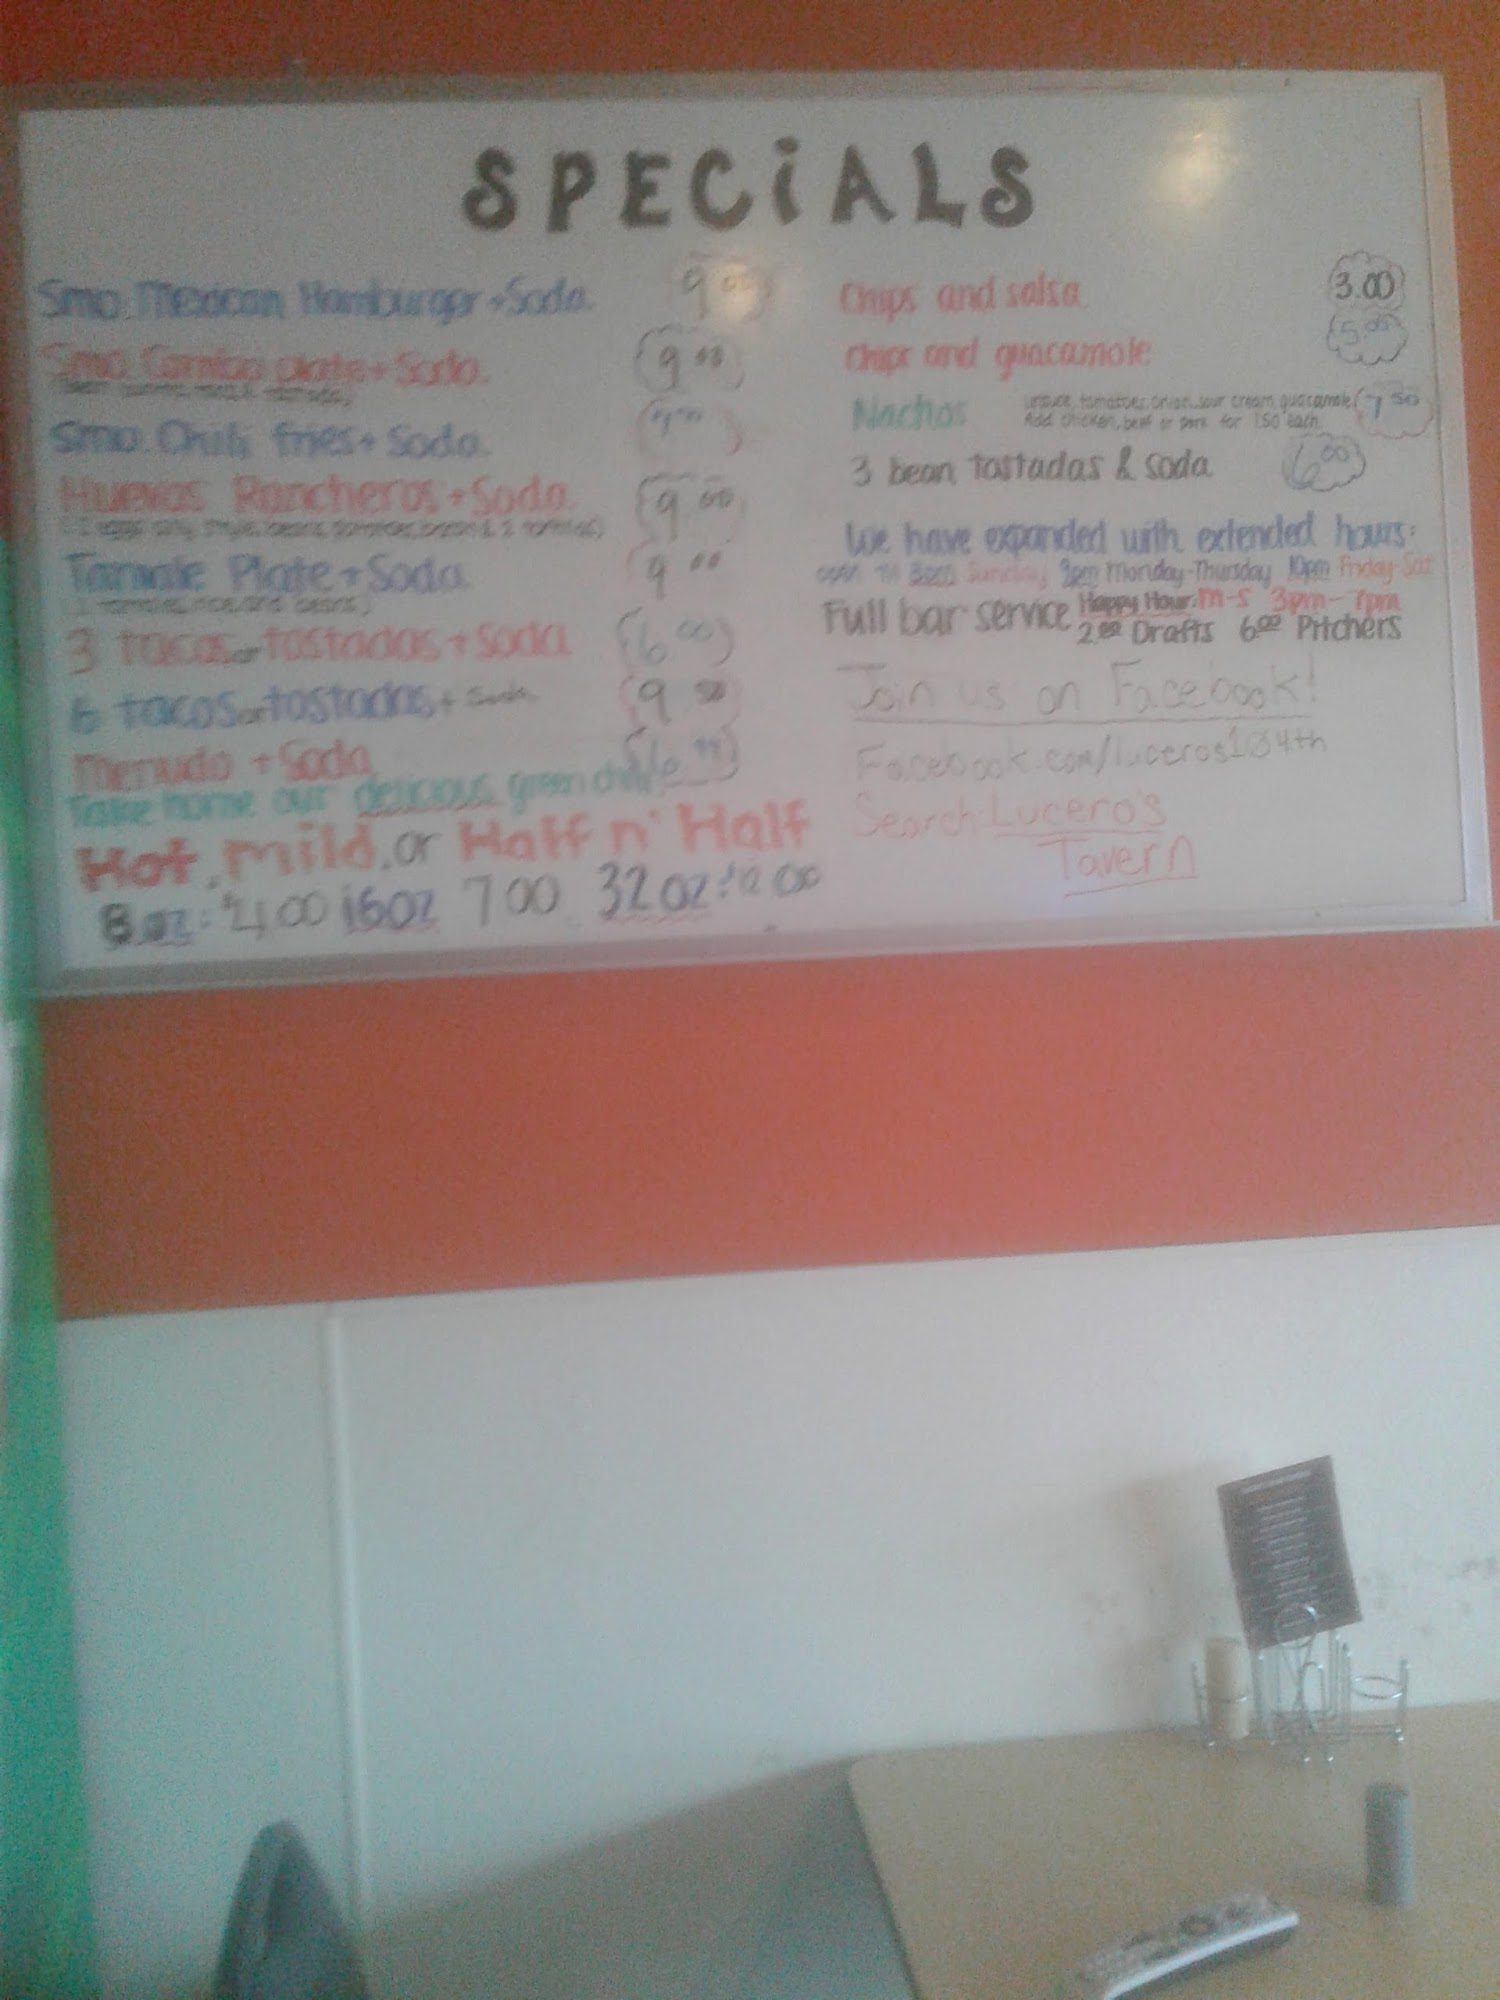 SPECiALS
Smo. Mexican Hamburger + Soda. 9 00
Smo. Combo plate + Soda. 9 00
Smo. Chili fries + Soda.
Huevos Rancheros + Soda. 9 00
Tamale Plate + Soda 9 00
3 tacos or tostadas + Soda 6 00
6 tacos or tostadas + Soda 9 50
Menudo + Soda 6 99
Take home our delicious green chili
Hot, Mild, or Half n' Half
8 oz: $4 00 16oz 7 00 32 oz: $12 00
Chips and salsa 3.00
Chips and guacamole 5 00
Nachos lettuce, tomatoes, onion, sour cream, guacamole 7 50
Add chicken, beef or pork for 1.50 each
3 bean tostadas & soda 6 00
We have expanded with extended hours:
open til 8pm Sunday 9pm Monday-Thursday 10pm Friday-Sat
Full bar service Happy Hour: M-S 3pm-7pm
2.00 Drafts 6 00 Pitchers
Join us on Facebook!
Facebook.com/luceros104th
Search: Lucero's
Tavern